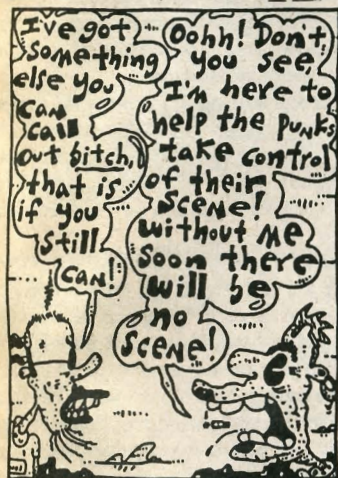 I've got
something
else you
can
call
out bitch,
that is
if you
still
can!
Oohh! Don't
you see,
I'm here to
help the punks
take control
of their
scene!
without me
soon there
will be
no
scene!